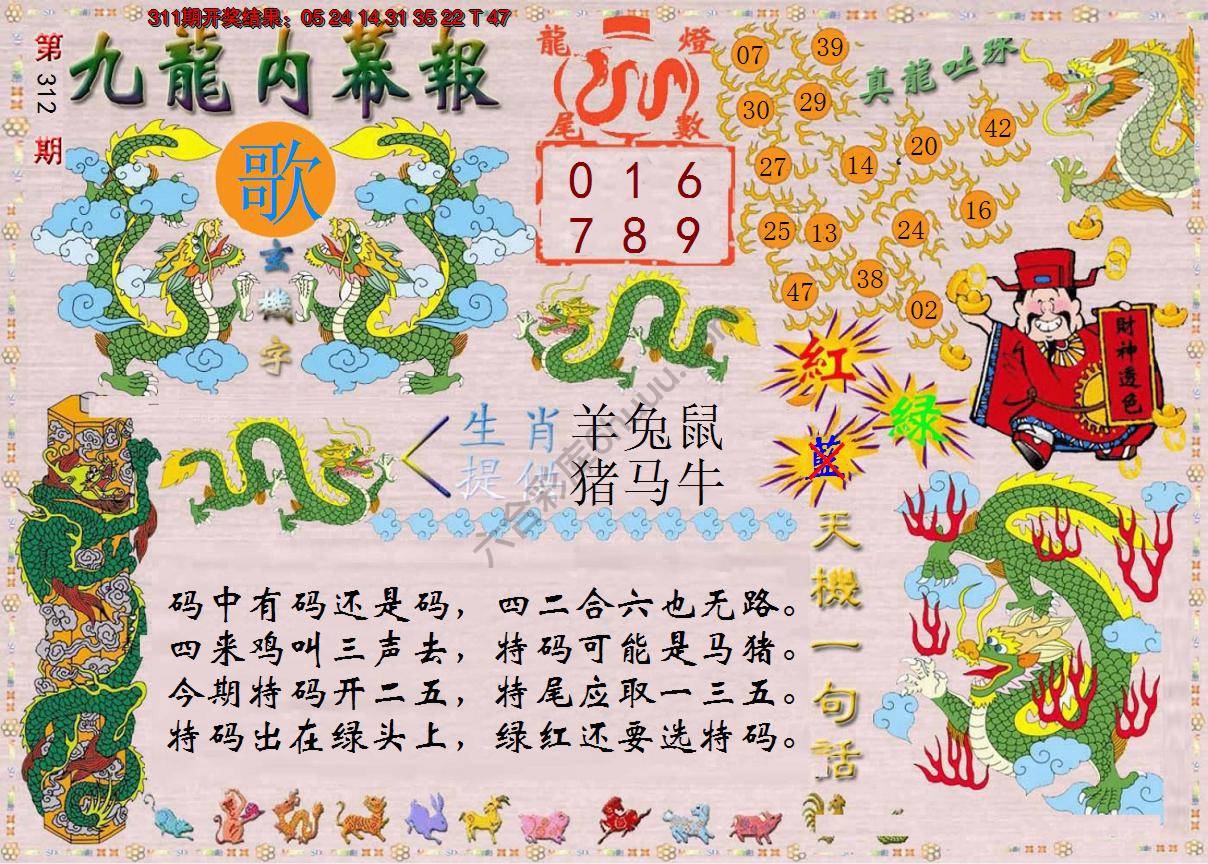 311期开奖结果：05 24 14 31 35 22 T 47
第312期
九龍内幕報
歌
玄機字
龍燈
尾數
0 1 6
7 8 9
真龍吐珠
07
39
30
29
42
20
27
14
16
25
13
24
38
47
02
財神透色
紅
綠
藍
生肖 羊兔鼠
提供 猪马牛
天機一句話
码中有码还是码，四二合六也无路。
四来鸡叫三声去，特码可能是马猪。
今期特码开二五，特尾应取一三五。
特码出在绿头上，绿红还要选特码。